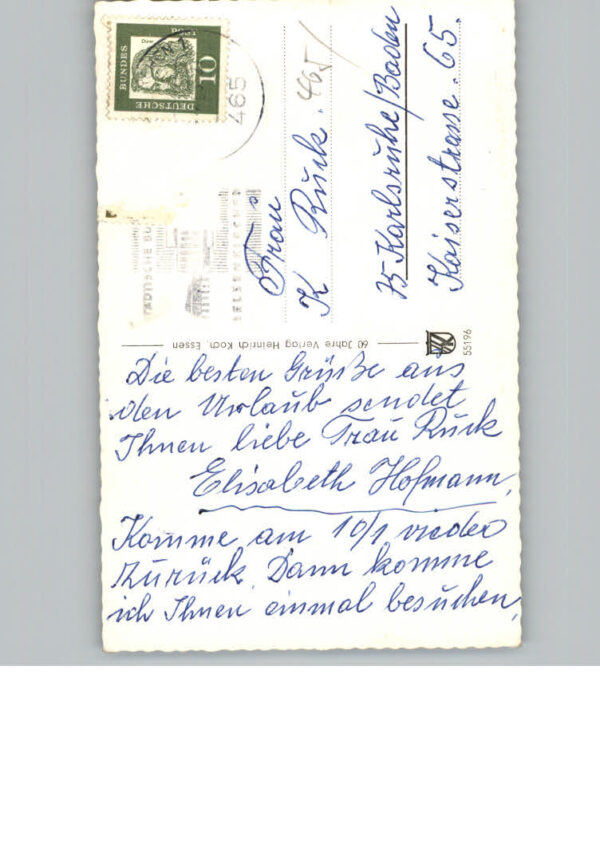 Die besten Grüße aus
den Urlaub sendet
Ihnen liebe Frau Ruck
Elisabeth Hofmann,
Komme am 10/1 wieder
zurück. Dann komme
ich Ihnen einmal besuchen,
60 Jahre Verlag Heinrich Koch, Essen
55196
Frau
K Ruck. 465/
75 Karlsruhe/Baden
Kaiserstrasse. 65.
DEUTSCHE BUNDES
10
465